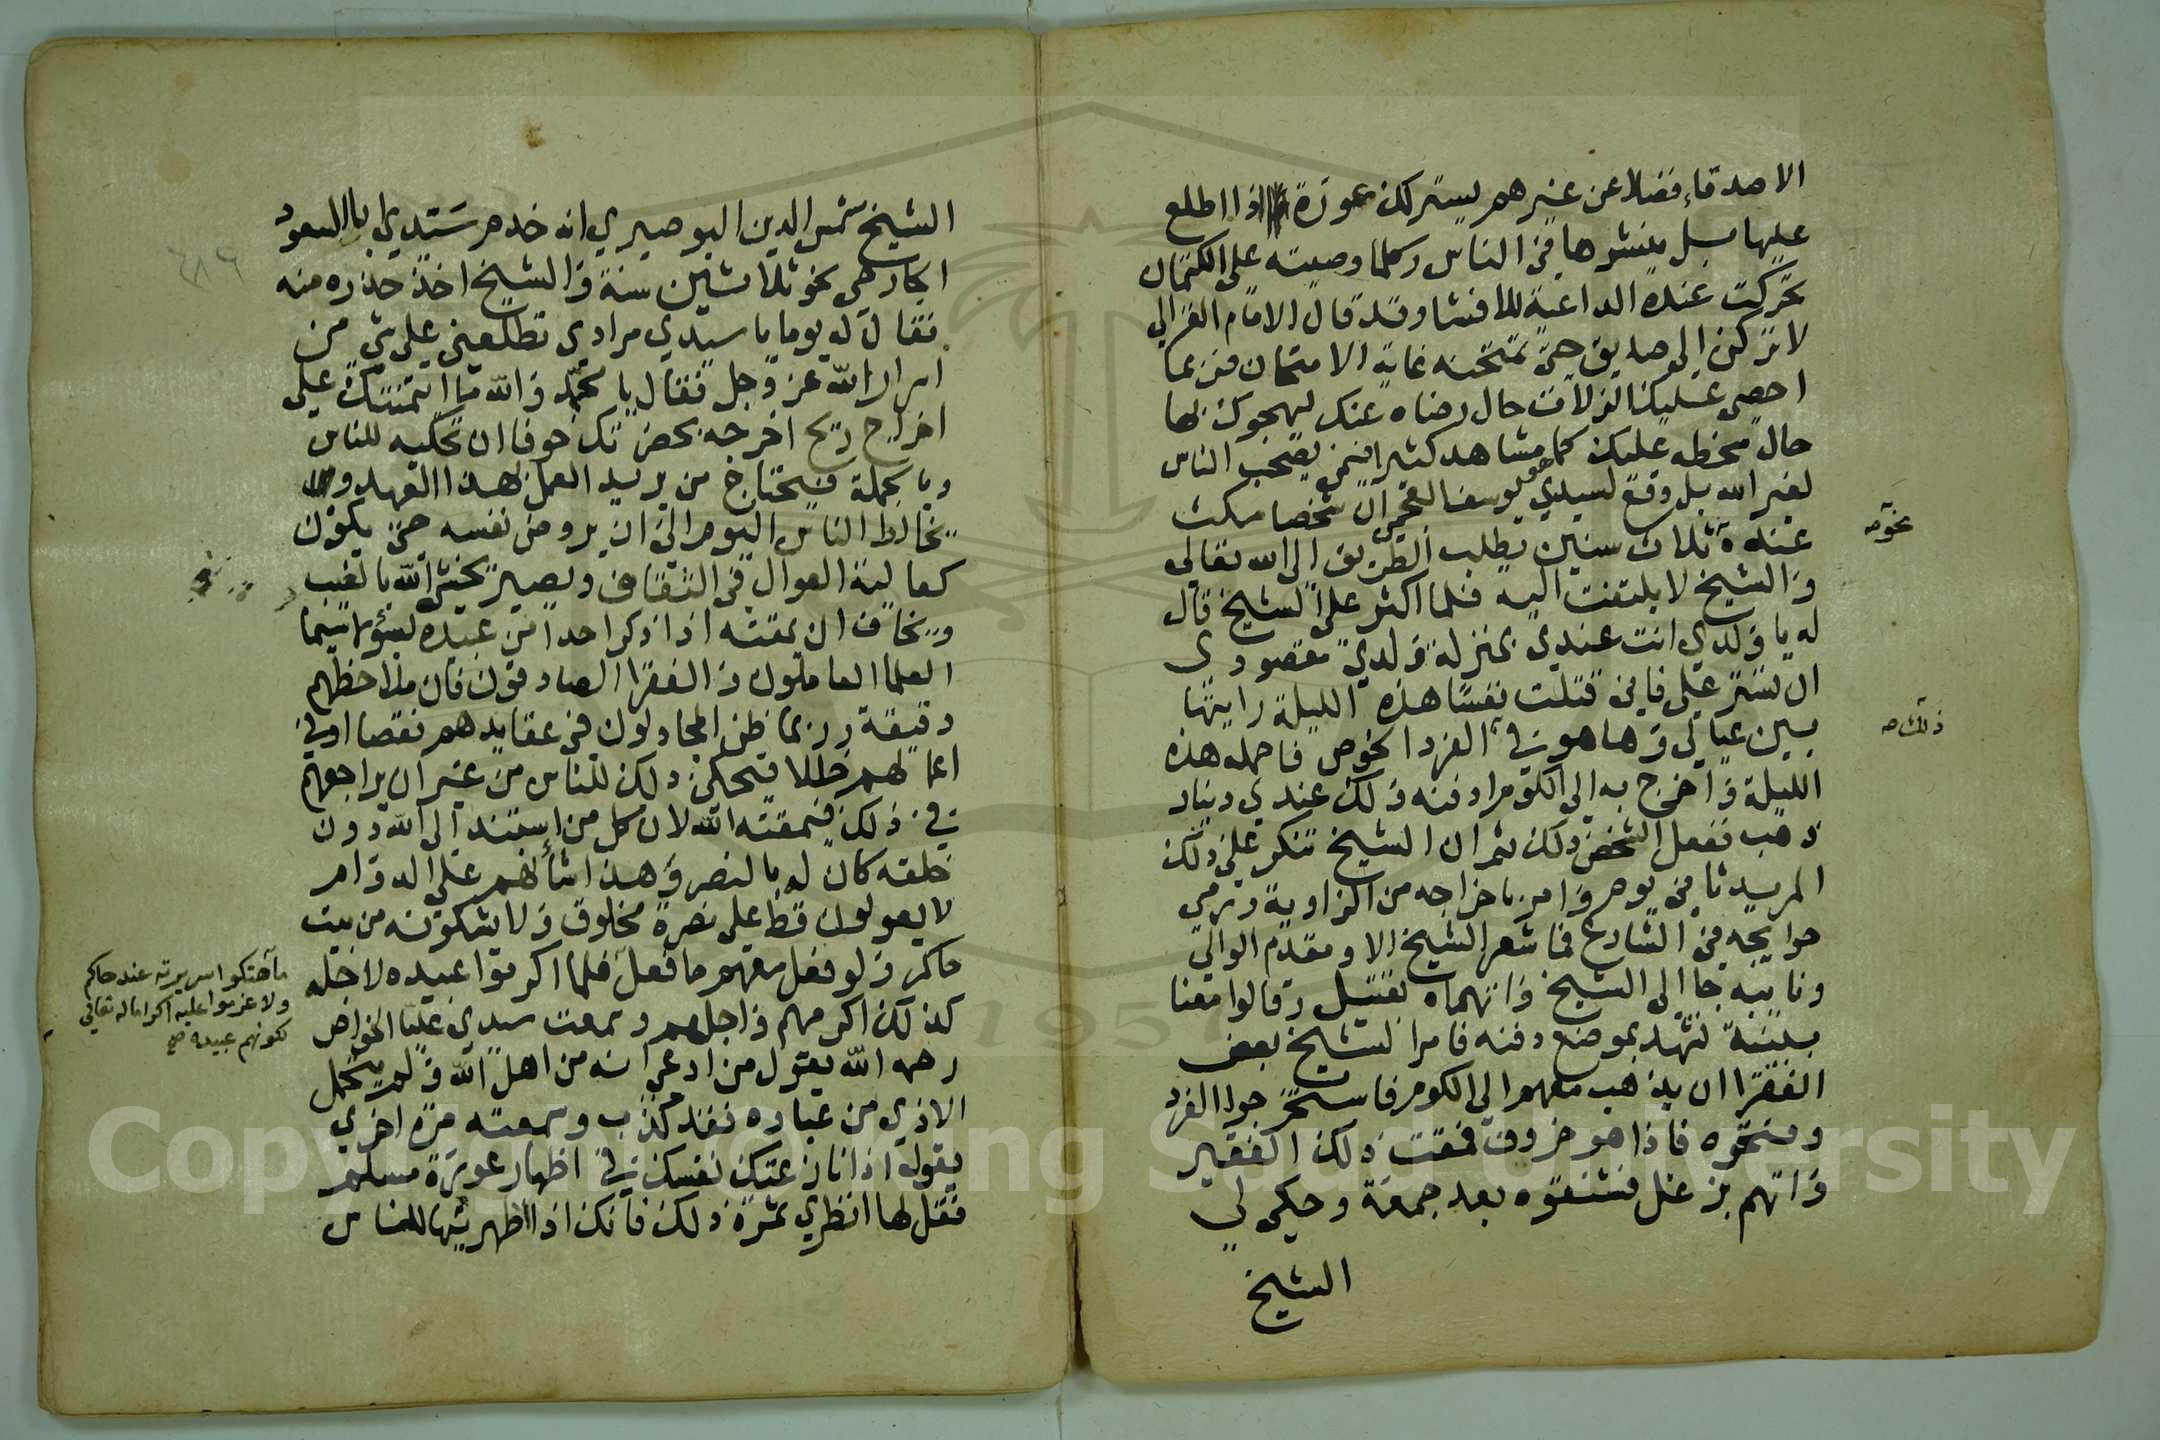 الاصدقاء فضلا عن غيرهم يستر لك عورة اذا اطلع
عليها بل ينشرها في الناس وكلما وصيته على الكتمان
تحركت عنده الداعية للافشا وقد قال الامام الغزالي
لا تركن الى صديق حتى تمتحنه غاية الامتحان فربما
احصى عليك الزلات حال رضاه عنك ليهجوك بها
حال سخطه عليك كما هو مشاهد كثيرا فيمن يصحب الناس
لغير الله بل وقع لسيدي يوسف العجمي ان شخصا مكث
عنده ثلاث سنين يطلب الطريق الى الله تعالى
نحو صح
والشيخ لا يلتفت اليه فلما اكثر على الشيخ قال
له يا ولدي انت عندي بمنزلة ولدي مقصودي
ان تستر علي فاني قتلت نفسا هذه الليلة رايتها
بين عيالي وها هو في الفرد الخوص فاحمله هذه
ذلك صح
الليلة واخرج به الى الكوم ادفنه ولك عندي دينار
ذهب ففعل الشخص ذلك ثم ان الشيخ تنكر على ذلك
المريد ثاني يوم وامر باخراجه من الزاوية ورمي
حوايجه في الشارع فما شعر الشيخ الا ومقدم الوالي
ونايبه جا الى الشيخ واتهماه بقتيل وقالوا معنا
بينة تشهد بموضع دفنه فامر الشيخ بعض
الفقرا ان يذهب معهم الى الكوم فاستخرجوا الفرد
وفتحوه فاذا هو خروف فمقت ذلك الفقير
واتهم بزغل فشنقوه بعد جمعة وحكى لي
الشيخ
الشيخ شمس الدين البوصيري انه خدم سيدي ابا السعود
الجارحي نحو ثلاثين سنة والشيخ اخذ حذره منه
فقال له يوما يا سيدي مرادي تطلعني على شي من
اسرار الله عز وجل فقال يا محمد والله ما ائتمنتك على
اخراج ريح اخرجه بحضرتك خوفا ان تحكيه للناس
وبالجملة فيحتاج من يريد العمل بهذا العهد و
يخالط الناس اليوم الى ان يروض نفسه حتى يكون
كعالية العوال في الثقاف ويصير يخشى الله بالغيب
ويخاف ان يمقته اذا ذكر احدا من عبيده بسوء لاسيما
العلما العاملون والفقرا الصادقون فان ملاحظهم
دقيقة وربما ظن المجادلون في عقايدهم نقصا او في
اعمالهم خللا فيحكي ذلك للناس من غير ان يراجعهم
في ذلك فيمقته الله لان كل من استند الى الله دون
خلقه كان له بالنصر وهذا شانهم على الدوام
لا يعولون قط على نصرة مخلوق ولا يشكونه من بيت
حاكم ولو فعل معهم ما فعل فلما اكرموا عبيده لاجله
ما هتكوا سريرته عند حاكم
ولا عزموا عليه اكراما له تعالى
لكونهم عبيده صح
كذلك اكرمهم واجلهم وسمعت سيدي عليا الخواص
رحمه الله يقول من ادعى انه من اهل الله ولم يتحمل
الاذي من عباده فقد كذب وسمعته مرة اخري
يقول اذا نازعتك نفسك في اظهار عورة مسلم
فقل لها انظري ثمرة ذلك فانك اذا اظهرتيها للناس